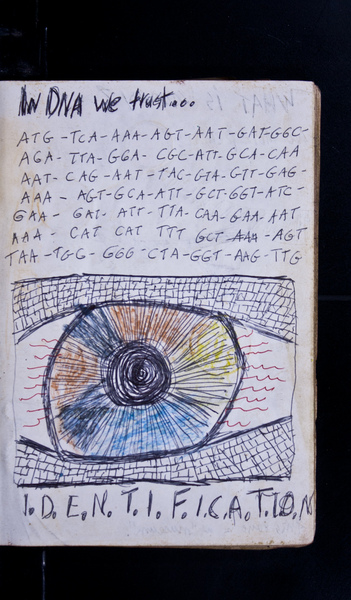 IN DNA we trust...
ATG-TCA-AAA-AGT-AAT-GAT-GGC-
AGA-TTA-GGA-CGC-ATT-GCA-CAA
AAT-CAG-AAT-TAC-GTA-GTT-GAG-
AAA-AGT-GCA-ATT-GCT-GGT-ATC-
GAA-GAT-ATT-TTA-CAA-GAA-AAT
AAA CAT CAT TTT GCT AAA-AGT
TAA-TGC-GGG-CTA-GGT-AAG-TTG
I.D.E.N.T.I.F.I.C.A.T.I.O.N